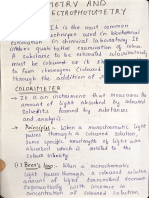 METRY AND
ECTROPHOTOMETRY
It is the most common
technique used in biochemical
estimation in clinical laboratory. It
involves quantitative estimation of colour.
A substance to be estimated colorimetrically
must be coloured or it should
to form chromogen (coloured
through the addition of
COLORIMETER
It is an instrument that measures the
amount of light absorbed by
formed by substances
and analysis.
Principle :- When a monochromatic light
passes through a coloured solution,
some specific wavelengths of light
are absorbed which is related to the
colour intensity.
(1) Beer's law :- When a monochromatic
light passes through a coloured solution
amount of light transmitted decreases
exponentially with increase in
concentration of coloured solution.